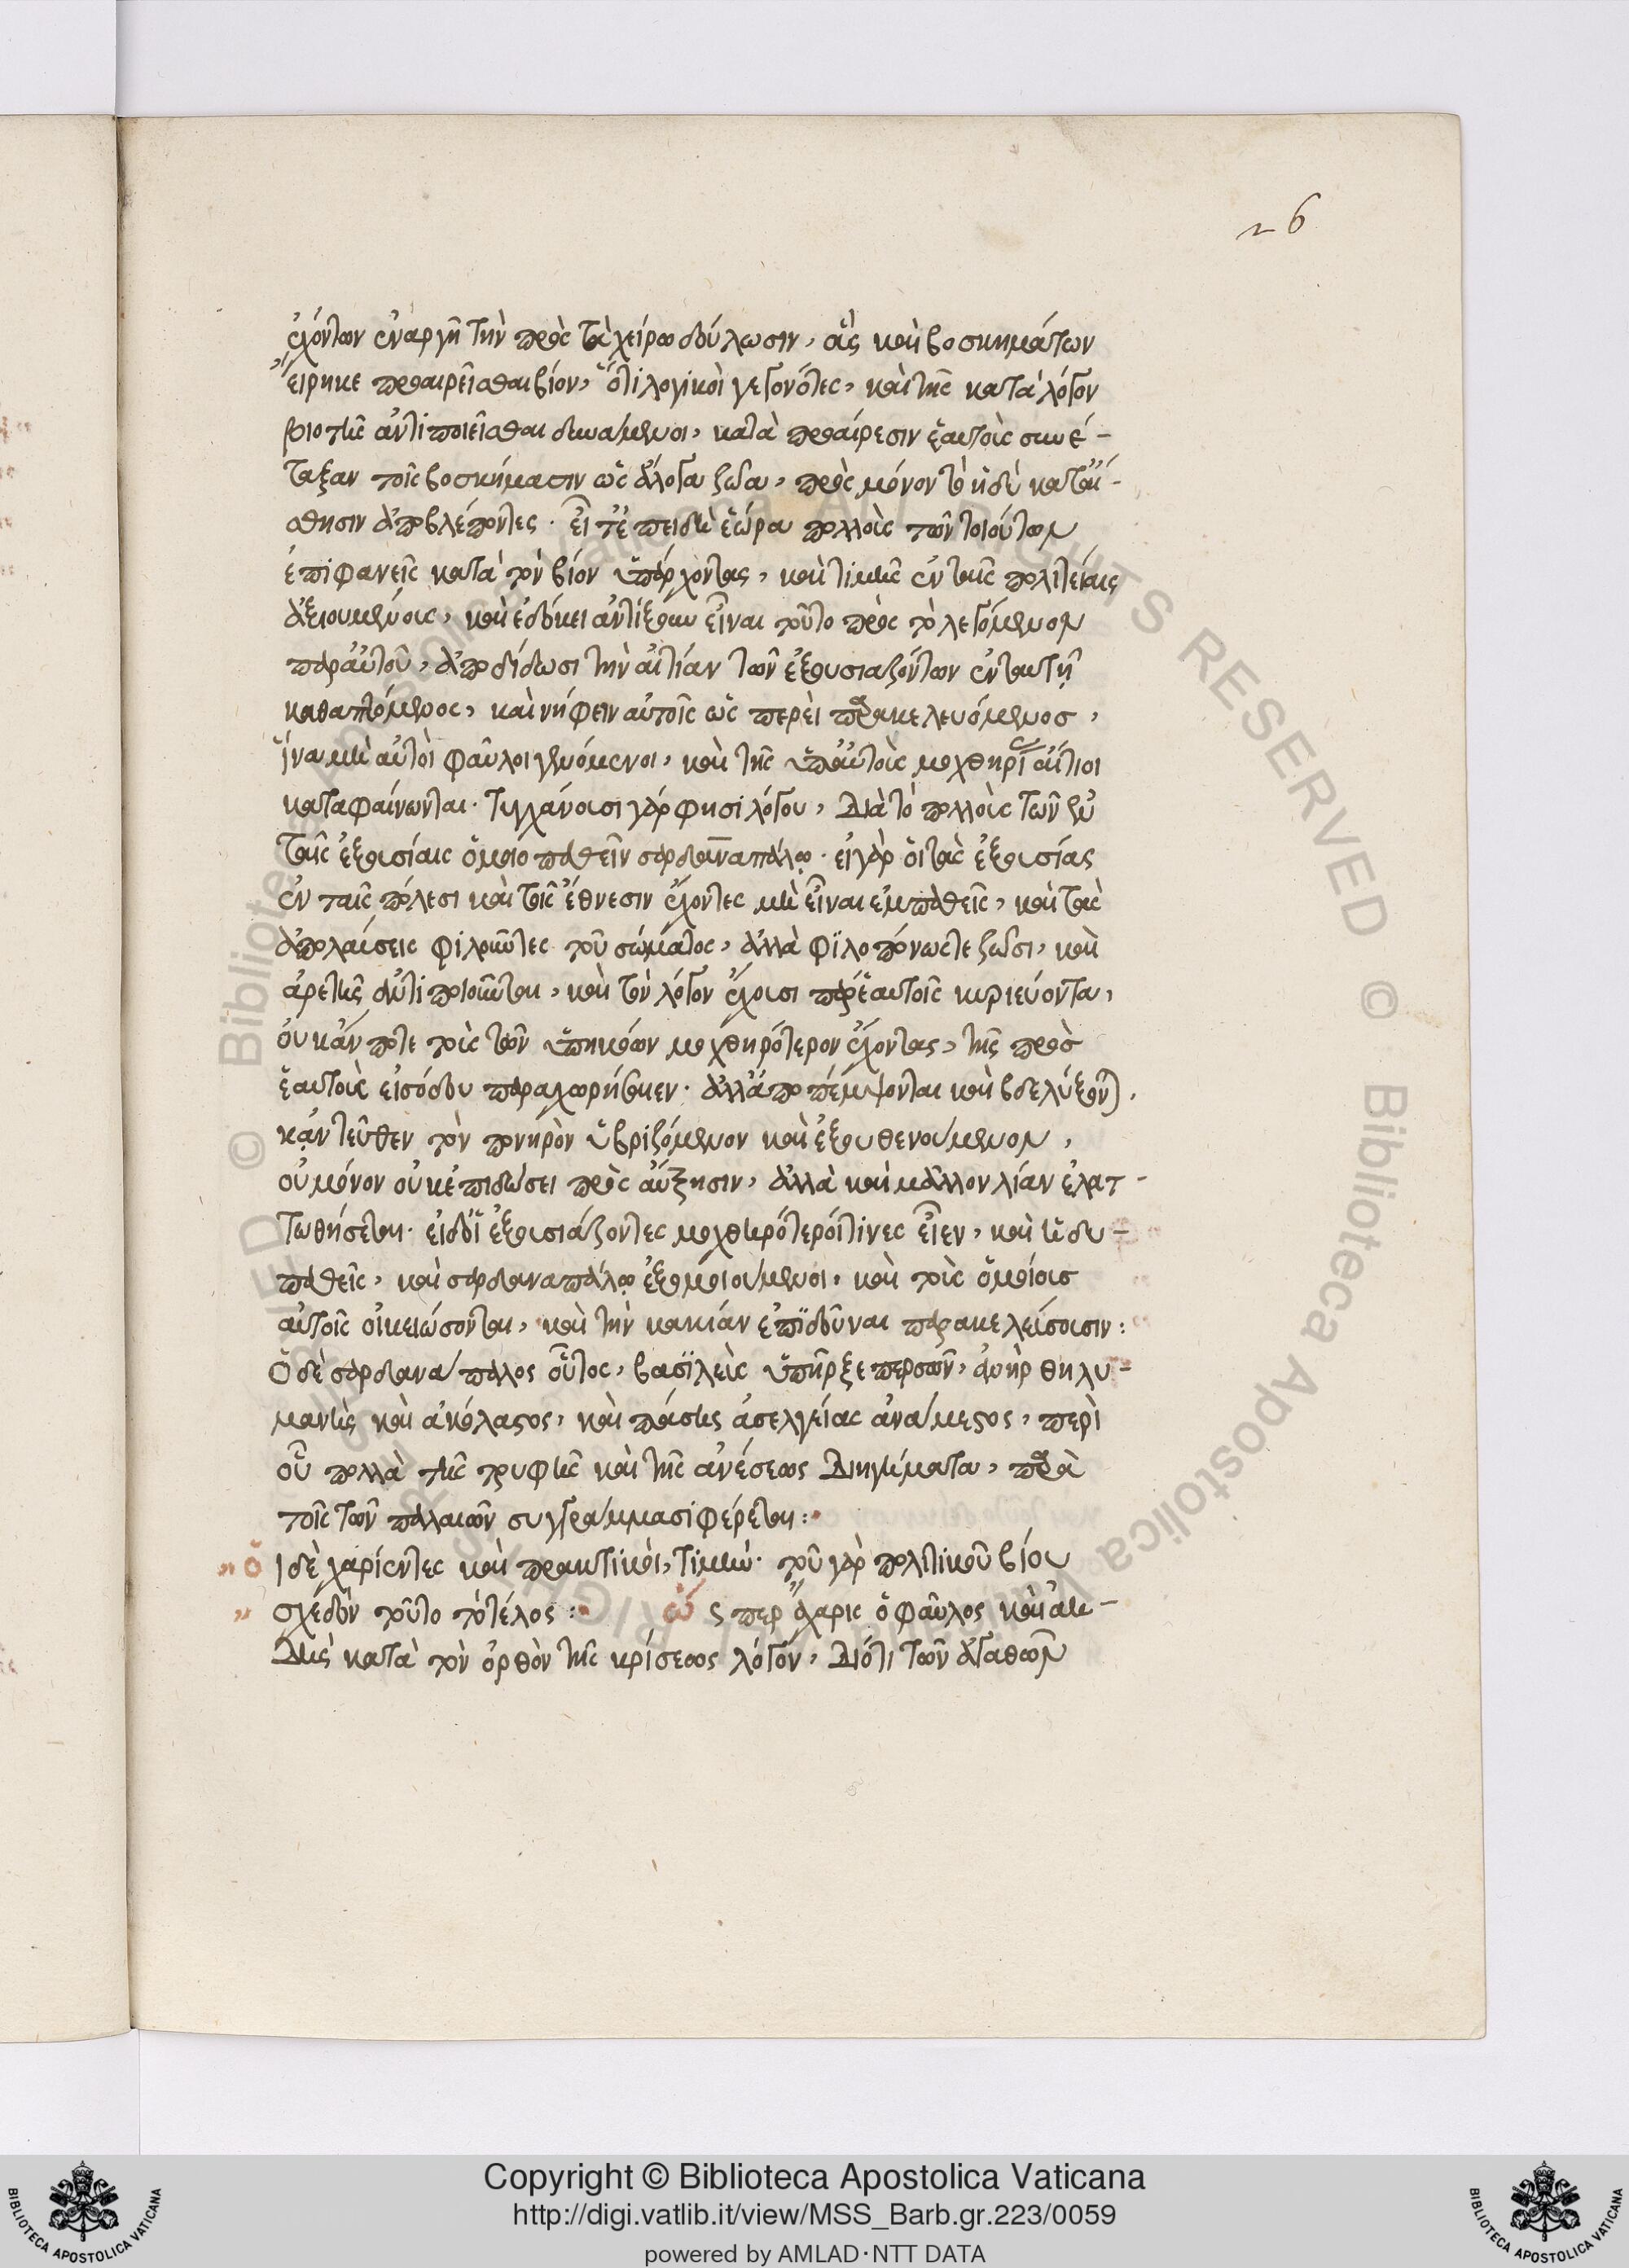 26
ἐχόντων ἐναργῆ τὴν πρὸς τὰ χείρω δούλωσιν, οὓς καὶ βοσκημάτων
εἴρηκε προαιρεῖσθαι βίον, ὅτι λογικοὶ γεγονότες, καὶ τῆς κατὰ λόγον
βιοτῆς ἀντιποιεῖσθαι δυνάμενοι, κατὰ προαίρεσιν ἑαυτοὺς συνέ-
ταξαν τοῖς βοσκήμασιν ὡς ἄλογα ζῶα, πρὸς μόνον τὸ ἡδὺ κατ' αἴ-
σθησιν ἀποβλέποντες. εἶτ' ἐπειδὴ ἑώρα πολλοὺς τῶν τοιούτων
ἐπιφανεῖς κατὰ τὸν βίον ὑπάρχοντας, καὶ τιμῆς ἐν ταῖς πολιτείαις
ἀξιουμένους, καὶ ἐδόκει ἀντίξουν εἶναι τοῦτο πρὸς τὸ λεγόμενον
παρ' αὐτοῦ, ἀποδίδωσι τὴν αἰτίαν τῶν ἐξουσιαζόντων ἐνταυτῇ
καθαπτόμενος, καὶ νήφειν αὐτοῖς ὡς περεὶ παρακελευόμενος,
ἵνα μὴ αὐτοὶ φαῦλοι γενόμενοι, καὶ τῆς ὑπ' αὐτοὺς μοχθηρίας αἴτιοι
καταφαίνωνται. Τυγχάνουσι γάρ φησι λόγου, Διὰ τὸ πολλοὺς τῶν ἐν
ταῖς ἐξουσίαις ὁμοιοπαθεῖν σαρδαναπάλῳ. εἰ γὰρ οἱ τὰς ἐξουσίας
ἐν ταῖς πόλεσι καὶ τοῖς ἔθνεσιν ἔχοντες μὴ εἶναι ἐμπαθεῖς, καὶ τὰς
ἀπολαύσεις φιλοῦντες τοῦ σώματος, ἀλλὰ φιλοπόνως τε ζῶσι, καὶ
ἀρετῆς ἀντιποιοῦνται, καὶ τὸν λόγον ἔχουσι παρ' ἑαυτοῖς κυριεύοντα,
οὐκ ἄν ποτε τοὺς τῶν ὑπηκόων μοχθηρότερον ἔχοντας, τῆς πρὸς
ἑαυτοὺς εἰσόδου παραχωρήσαιεν. ἀλλ' ἀποπέμψονται καὶ βδελύξονται.
κἀντεῦθεν τὸν πονηρὸν ὑβριζόμενον καὶ ἐξουθενούμενον,
οὐ μόνον οὐκ ἐπιδώσει πρὸς αὔξησιν, ἀλλὰ καὶ μᾶλλον λίαν ἐλατ-
τωθήσεται. εἰ δ' οἱ ἐξουσιάζοντες μοχθηρότεροί τινες εἶεν, καὶ ἡδυ-
παθεῖς, καὶ σαρδαναπάλῳ ἐξομοιούμενοι, καὶ τοὺς ὁμοίους
αὐτοῖς οἰκειώσονται, καὶ τὴν κακίαν ἐπιδοῦναι παρακελεύσουσιν:
Ὁ δὲ σαρδανάπαλος οὗτος, βασιλεὺς ὑπῆρξε περσῶν, ἀνὴρ θηλυ-
μανὴς καὶ ἀκόλαστος, καὶ πάσης ἀσελγείας ἀνάμεστος, περὶ
οὗ πολλὰ τῆς τρυφῆς καὶ τῆς ἀνέσεως Διηγήματα, παρὰ
τοῖς τῶν παλαιῶν συγγράμμασι φέρεται:
Οἱ δὲ χαρίεντες καὶ πρακτικοὶ, τιμήν. τοῦ γὰρ πολιτικοῦ βίου
σχεδὸν τοῦτο τὸ τέλος: ὥς περ ἄχαρις ὁ φαῦλος καὶ ἀη-
Δὴς κατὰ τὸν ὀρθὸν τῆς κρίσεως λόγον, Διότι τῶν ἀγαθῶν
Copyright © Biblioteca Apostolica Vaticana
http://digi.vatlib.it/view/MSS_Barb.gr.223/0059
powered by AMLAD·NTT DATA